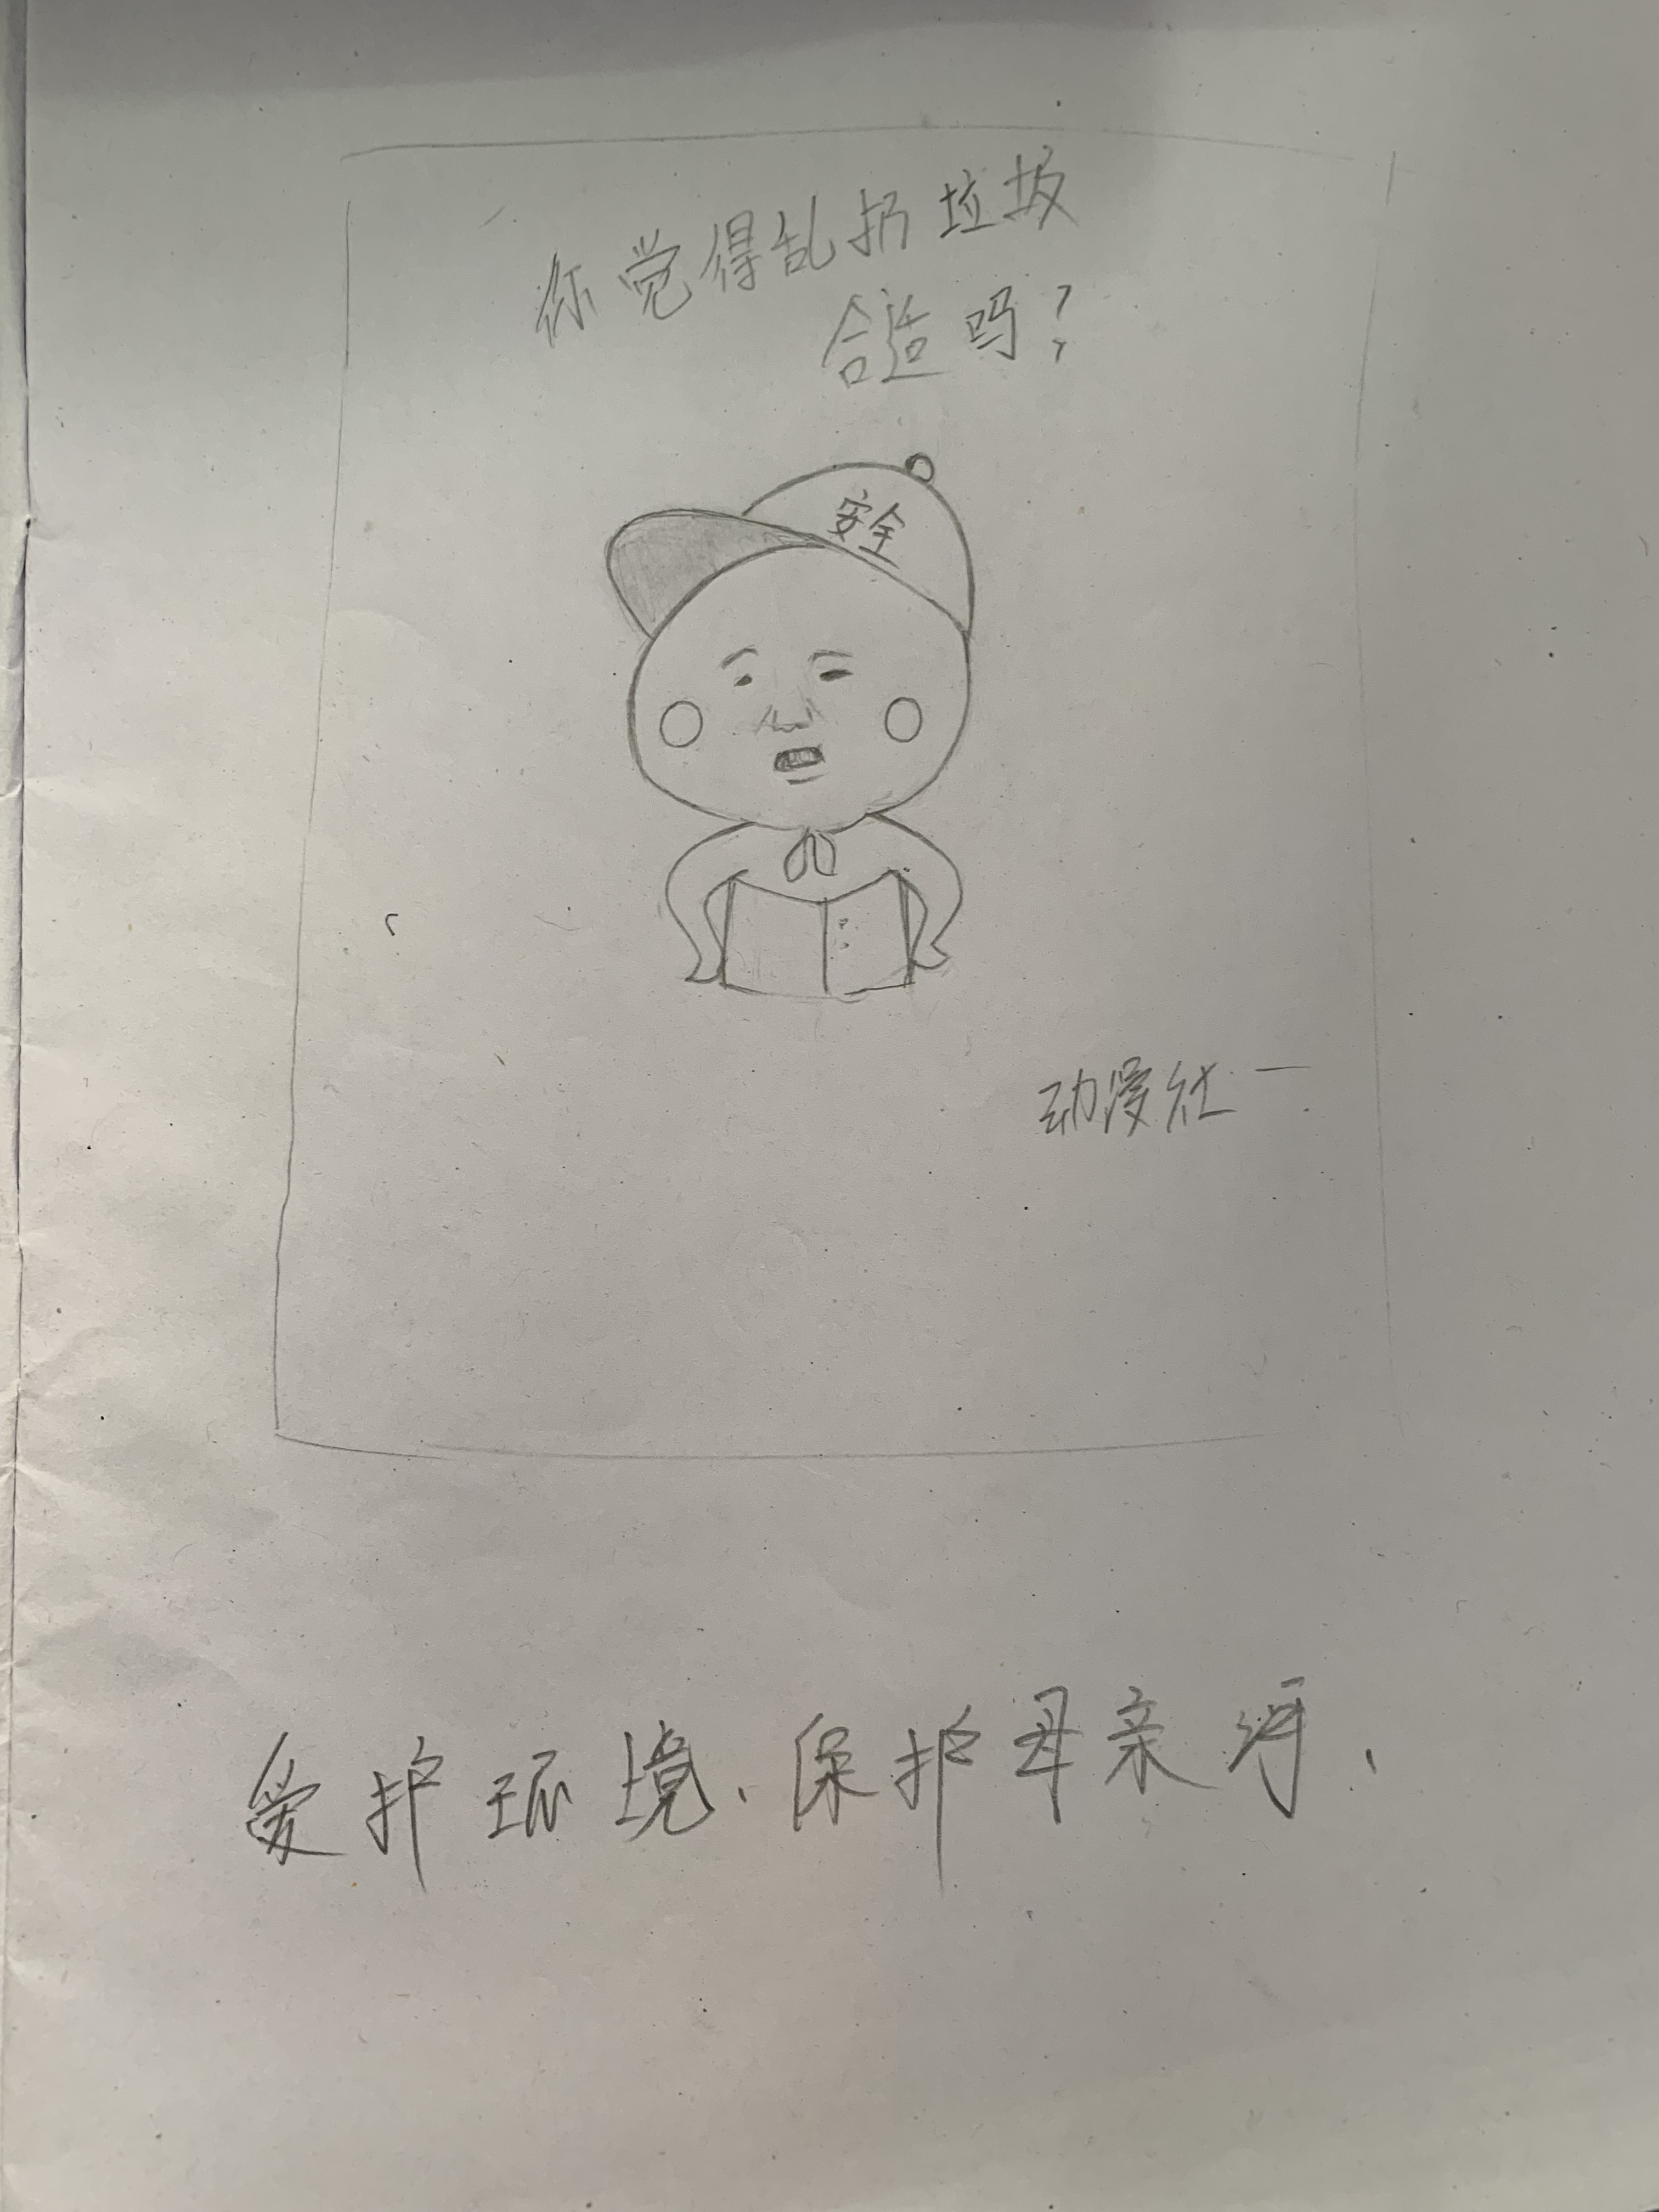 你觉得乱扔垃圾
合适吗?
安全
动漫社一
爱护环境、保护母亲河、